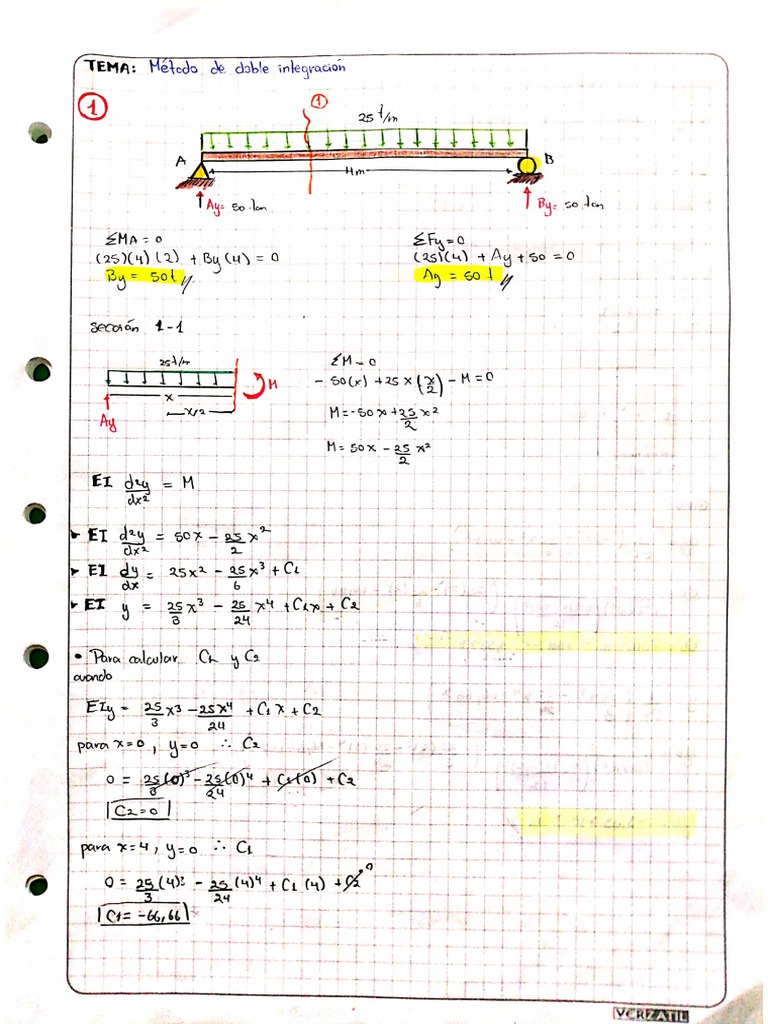 TEMA: Método de doble integración
1
1
25 t/m
A
B
4m
Ay= 50 ton
By= 50 ton
ΣMA = 0
(25)(4)(2) + By(4) = 0
By = 50t
ΣFy = 0
(25)(4) + Ay + 50 = 0
Ay = 50 t
sección 1-1
25 t/m
x
x/2
M
Ay
ΣM = 0
- 50(x) + 25x(x/2) - M = 0
M = -50x + 25/2 x²
M = 50x - 25/2 x²
EI d²y/dx² = M
EI d²y/dx² = 50x - 25/2 x²
EI dy/dx = 25x² - 25/6 x³ + C1
EI y = 25/3 x³ - 25/24 x⁴ + C1x + C2
• Para calcular C1 y C2
cuando
EIy = 25/3 x³ - 25x⁴/24 + C1 x + C2
para x=0, y=0 ∴ C2
0 = 25/3 (0)³ - 25/24 (0)⁴ + C1(0) + C2
C2 = 0
para x=4, y=0 ∴ C1
0 = 25/3 (4)³ - 25/24 (4)⁴ + C1 (4) + C2 0
C1 = -66,66
VERZATIL